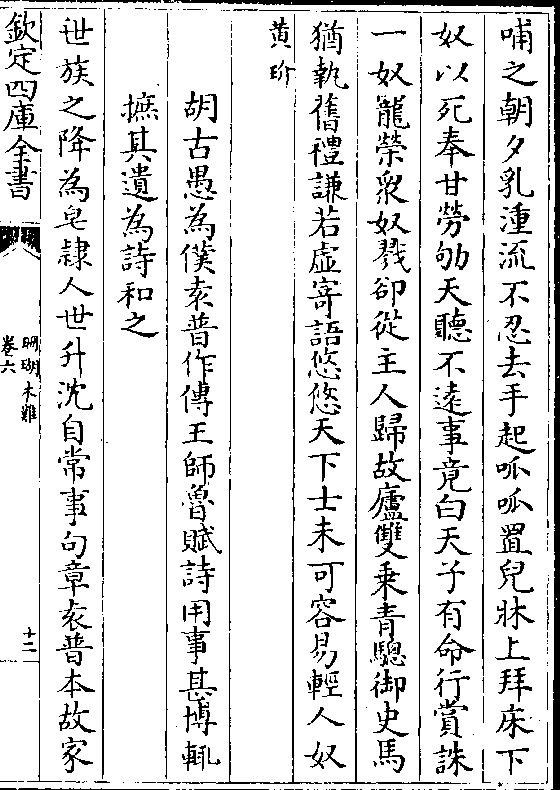 哺之朝夕乳湩流不忍去手起呱呱置兒牀上拜床下
奴以死奉甘勞劬天聽不遠事竟白天子有命行賞誅
一奴寵榮衆奴戮卻從主人歸故廬雙乗青驄御史馬
猶執舊禮謙若虚寄語悠悠天下士未可容易輕人奴
黄玠
胡古愚為僕袁普作傳王師魯賦詩用事甚博輒
摭其遺為詩和之
世族之降為皂隷人世升沈自常事句章袁普本故家
欽定四庫全書
珊瑚木難
卷六
十二